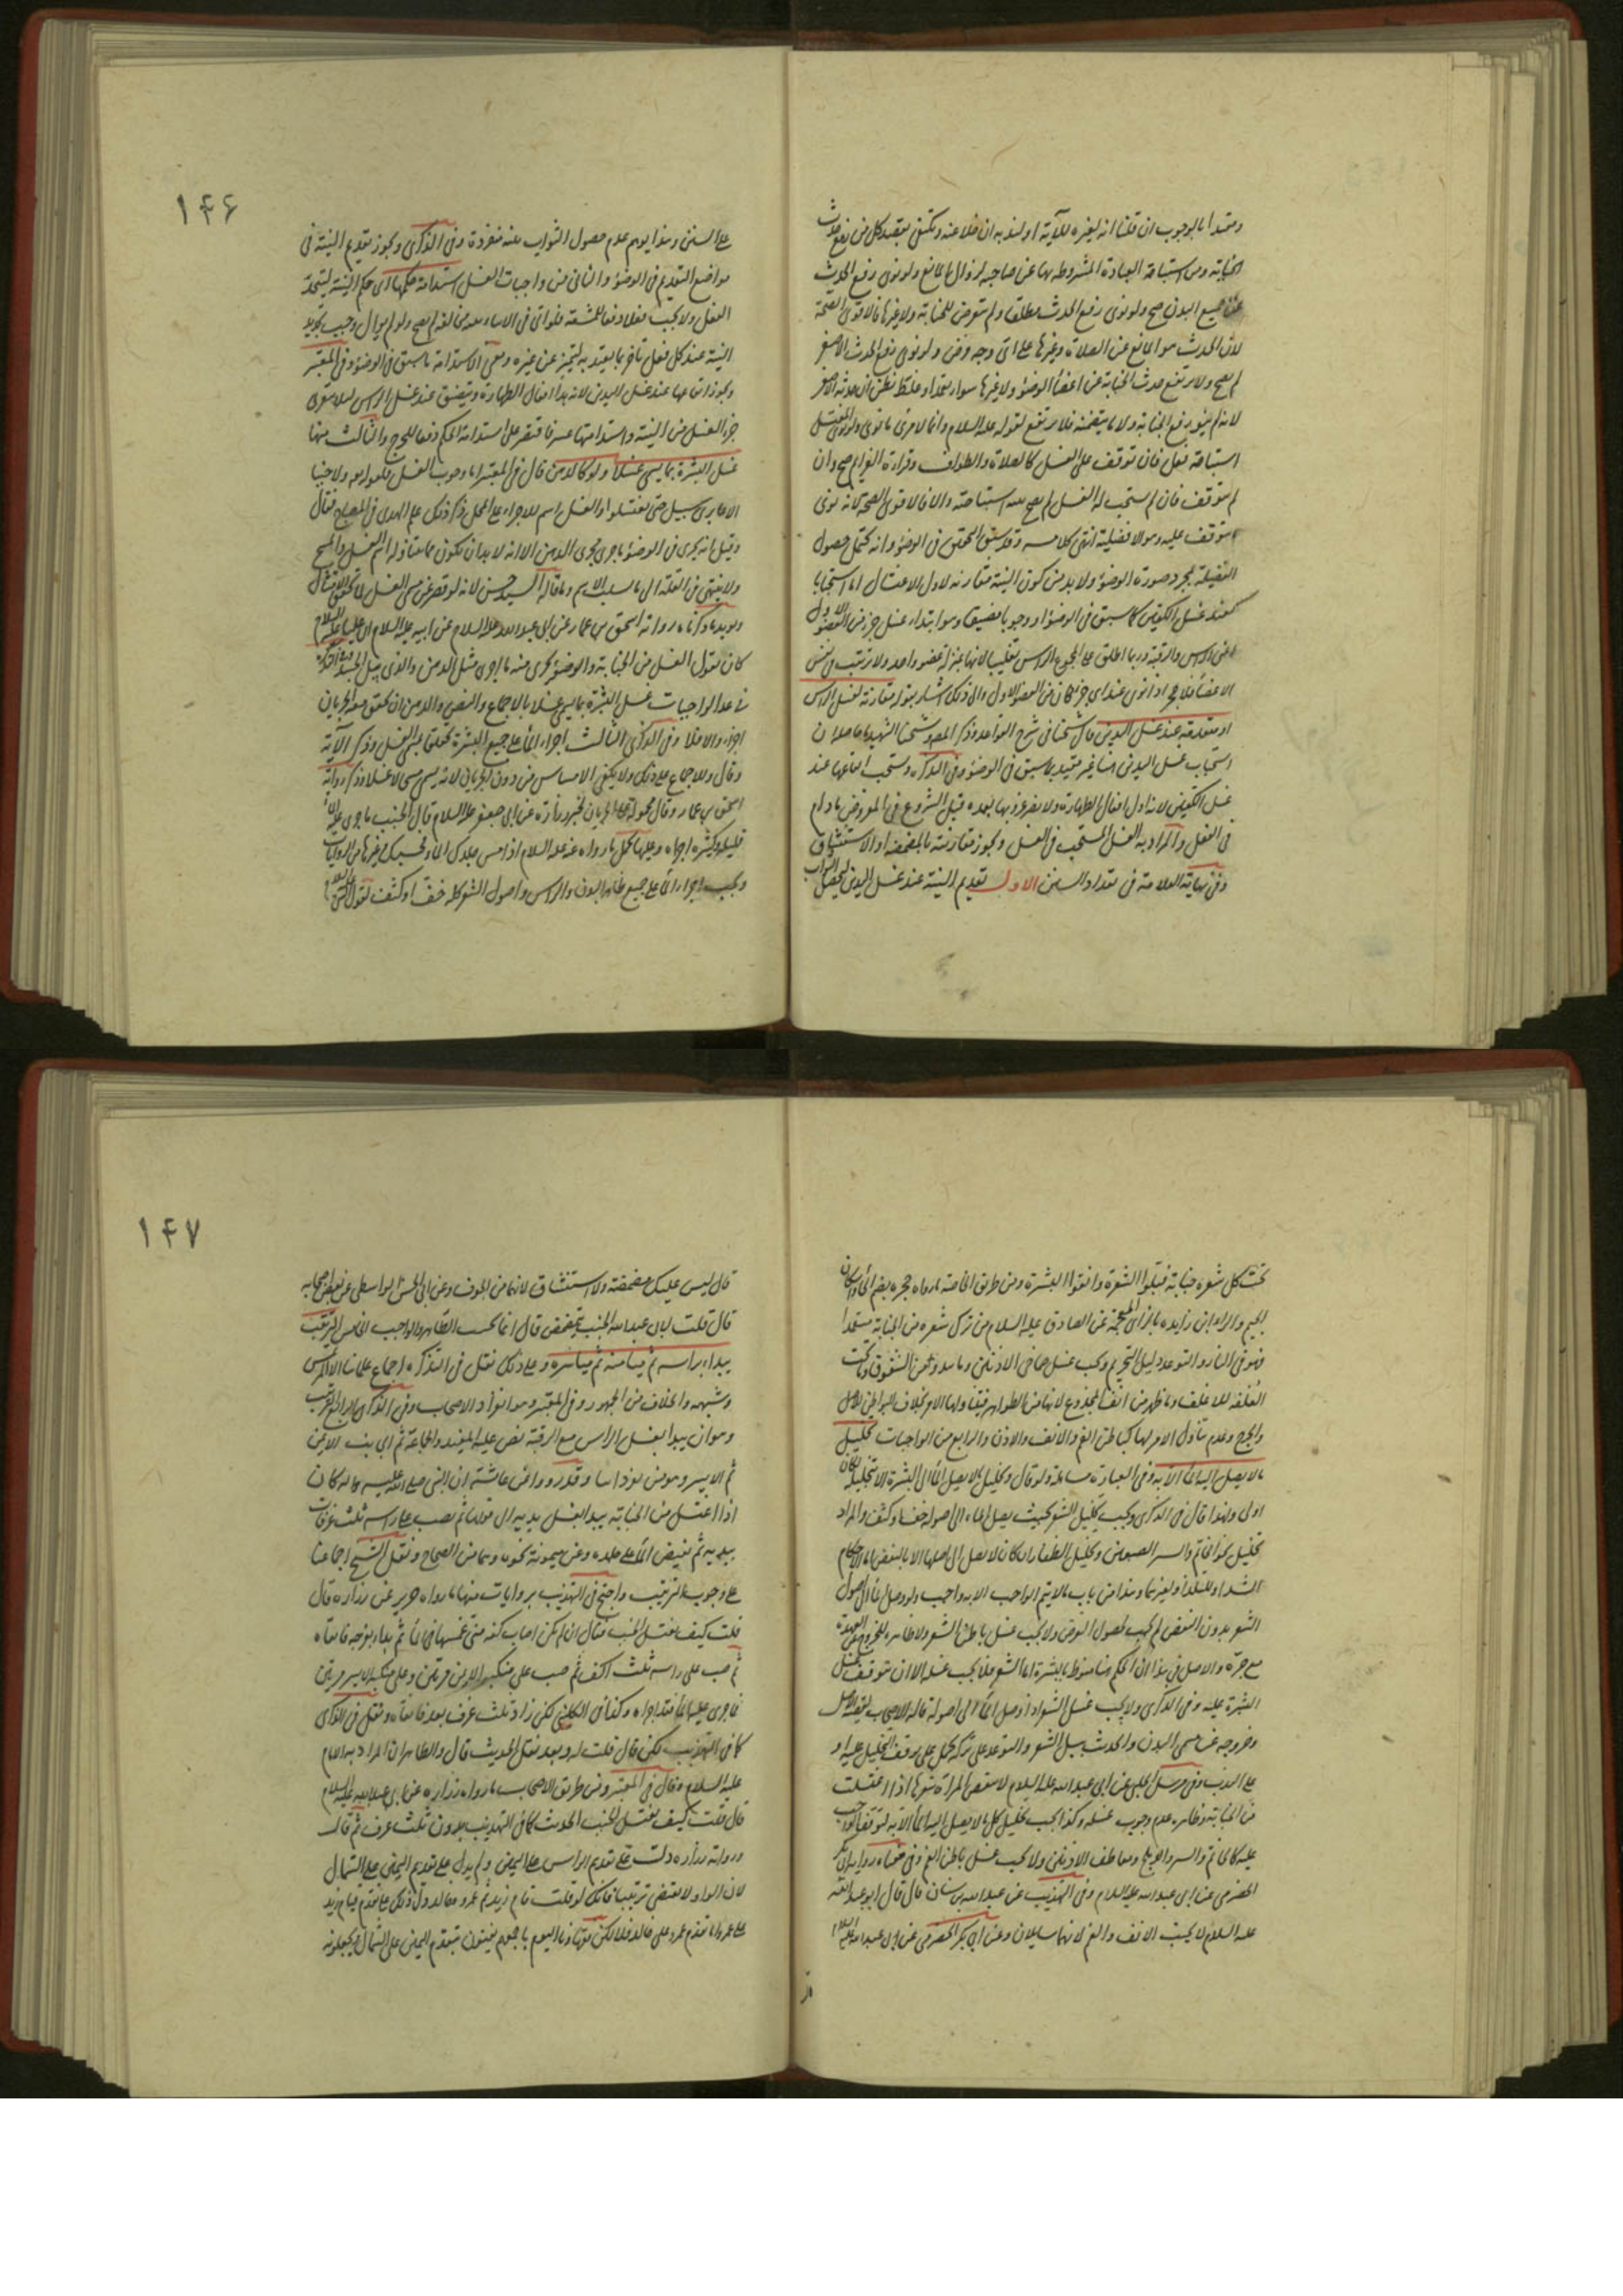 ومتحدا بالوجوب ان قلنا انه لغيره للآية اولنذبه ان خلا عنه ويكتفى بقصد كل من رفع حدث
الجنابة ومن استباحة العبادة المشروطة بها عن صاحبه لزوال المانع ولو نوى رفع الحدث
عن جميع البدن صح ولو نوى رفع الحدث مطلقا ولم يتعرض للجنابة ولا غيرها فالاقوى الصحة
لان الحدث هو المانع عن الصلاة وغيرها على اى وجه وفرض ولو نوى رفع الحدث الاصغر
لم يصح ولا يرتفع حدث الجنابة عن اعضاء الوضوء ولا غيرها سواء تعمد او غلط فظن ان حدثه الاصغر
لانه لم ينو رفع الجنابة ولا ما يتضمنه فلا يرتفع لقوله عليه السلام وانما لامرئ ما نوى ولو نوى المغتسل
استباحة فعل فان توقف على الغسل كالصلاة والطواف وقراءة العزائم صح وان
لم يتوقف فان لم يستحب له الغسل لم يصح عنه استباحته والا فالاقوى الصحة لانه نوى
ما يتوقف عليه وهو الافضلية انتهى كلامه وقد سبق التحقيق فى الوضوء وانه يحتمل حصول
الفضيلة بمجرد صورة الوضوء ولا بد من كون النية مقارنة لاول الاغتسال اما استحبابا
كعند غسل الكفين كما سبق فى الوضوء او وجوبا مضيقا وهو ابتداء غسل جزء من العضو الاول
اعنى الراس والرقبة وربما اطلق على المجموع الراس تغليبا لانهما بمنزلة عضو واحد ولا ترتيب فى نفس
الاعضاء فلا حجر اذا نوى عند اى جزء كان من العضو الاول والى ذلك اشار بقوله مقارنة لغسل الراس
او متقدمة عند غسل اليدين قال شيخنا فى شرح القواعد وذكر المصنف وشيخنا الشهيد ما حاصله ان
استحباب غسل اليدين هنا غير مقيد بما سبق فى الوضوء وفى التذكرة ويستحب ايقاعها عند
غسل الكفين لانه اول افعال الطهارة ولا يضر عزوبها بعده قبل الشروع فى المفروض ما دام
فى الفعل والمراد به الفعل المستحب فى الغسل ويجوز مقارنته بالمضمضة او الاستنشاق
وفى نهاية العلامة فى تعداد السنن الاول تقديم النية عند غسل اليدين ليحصل الثواب
۱۴۶
على السنن وهذا يوهم عدم حصول الثواب بنية منفردة وفى الذكرى ويجوز تقديم النية فى
مواضع التقديم فى الوضوء والثانى من واجبات الغسل استدامة حكمها اى حكم النية ليتحد
الفعل ولا يجب فعلا دفعا للمشقة فلو اتى فى الاثناء بمناف لم يصح ولو لم يوال وجب تجديد
النية عند كل فعل تاخر بما يعتد به ليتميز عن غيره ومعنى الاستدامة ما سبق فى الوضوء وفى المعتبر
ويجوز ايقاعها عند غسل اليدين لانه بدا افعال الطهارة ويتضيق عند غسل الراس لئلا يتعرى
جزء الغسل من النية واستدامتها عسر فاقتصر على استدامة الحكم دفعا للحرج والثالث منها
غسل البشرة بما يسمى غسلا ولو كالدهن قال فى المعتبر اما وجوب الغسل فلقوله تعالى ولا جنبا
الا عابرى سبيل حتى تغتسلوا والغسل اسم للاجراء على المحل ذكر ذلك علم الهدى فى المصباح فقال
وقيل انه يجزى فى الوضوء ما جرى مجرى الدهن الا انه لا بد ان يكون مما يتناوله اسم الغسل والمسح
ولا ينتهى فى القلة الى ما يسلب الاسم وما قاله السيد حسن لانه لو قصر عن مسمى الغسل لما تحقق الامتثال
ويؤيد ما ذكرناه ما رواه اسحق بن عمار عن ابى عبد الله عليه السلام عن ابيه عليه السلام ان عليا عليه السلام
كان يقول الغسل من الجنابة والوضوء يجزى منه ما اجرى مثل الدهن والذى يبل الجسد وفى التذكرة
ثالث الواجبات غسل البشرة بما يسمى غسلا بالاجماع والنص والدهن ان تحقق معه الجريان
اجزء والا فلا وفى الذكرى الثالث اجراء الماء على جميع البشرة تحقيقا لمسمى الغسل وذكر الآية
وقال وللاجماع على ذلك ولا يكفى الامساس من دون الجريان لانه يسمى مسحا لا غسلا وذكر رواية
اسحق بن عمار وقال محمولة على الجريان لخبر زرارة عن ابى جعفر عليه السلام قال الجنب ما جرى عليه الماء
قليله وكثيره اجزاه وعليها يحمل ما رواه عنه عليه السلام اذا مس جلدك الماء فحسبك وغيرها من الروايات
ويجب اجراء الماء على جميع ظاهر البدن والراس واصول الشعر كله خف او كثف لقول النبى عليه السلام
تحت كل شعرة جنابة فبلوا الشعرة وانقوا البشرة ومن طريق الخاصة ما رواه حجر بضم الحاء واسكان
الجيم والراء ابن زايدة بالزاى المعجمة عن الصادق عليه السلام من ترك شعرة من الجنابة متعمدا
فهو فى النار والتوعد دليل التحريم ويجب غسل صماخى الاذنين وما يبدو من الشقوق وما تحت
القلفة للاغلف وما ظهر من انف المجذوع لانها من الظواهر فيتناولها الامر بخلاف البواطن للاصل
والحرج وعدم تناول الامر لها كباطن الفم والانف والاذن والرابع من الواجبات تخليل
ما لا يصل اليه الماء الا به وفى العبارة مساهلة ولو قال وتخليل ما لا يصل الماء الى البشرة الا بتخليله لكان
اولى ولهذا قال فى الذكرى ويجب تخليل الشعر بحيث يصل الماء الى اصوله خف او كثف والمراد
تخليل نحو الخاتم والسير
مع حره والاصل فى هذا ان الحكم هنا منوط بالبشرة اما الشعر فلا يجب غسله الا ان يتوقف غسل
البشرة عليه وفى الذكرى ولا يجب غسل الشعر اذا وصل الماء الى اصوله قاله الاصحاب لقضية الاصل
وخروجه عن مسمى البدن والحديث ببل الشعر والتوعد على تركه يحمل على توقف التخليل عليه او
على الندب وفى مرسل الحلبى عن ابى عبد الله عليه السلام لا تنقض المراة شعرها اذا اغتسلت
من الجنابة وظاهره عدم وجوب غسله وكذا يجب تخليل كل ما لا يصل اليه الماء الا به لتوقف الواجب
عليه كالخاتم والسير والدملج ومعاطف الاذنين ولا يجب غسل باطن الفم وفى معناه رواية ابى بكر
الحضرمى عن ابى عبد الله عليه السلام وفى التهذيب عن عبد الله بن سنان قال قال ابو عبد الله
عليه السلام لا يجنب الانف والفم لانهما سايلان وعن ابى بكر الحضرمى عن ابى عبد الله عليه السلام
۱۴۷
قال ليس عليك مضمضة ولا استنشاق لانهما من الجوف وعن ابى الحسن الواسطى عن بعض اصحابه
قال قلت لابى عبد الله الجنب يتمضمض قال انما يجنب الظاهر والواجب الخامس الترتيب
يبدا براسه ثم ميامنه ثم مياسره وعلى ذلك نقل فى التذكرة اجماع علمائنا الا الراس
وشبهه والخلاف من الجمهور وفى المعتبر وهو انفراد الاصحاب وفى الذكرى الرابع الترتيب
وهو ان يبدا بغسل الراس مع الرقبة نص عليه المفيد والجماعة ثم الجانب الايمن
ثم الايسر وهو من تفرداتنا وقد رووا عن عائشة ان النبى صلى الله عليه وآله كان
اذا اغتسل من الجنابة يبدا بغسل يديه الى قولها ثم يصب على راسه ثلث غرفات
بيديه ثم يفيض الماء على جلده وعن ميمونة نحوه وهما من الصحاح ونقل الشيخ اجماعنا
على وجوب الترتيب واحتج فى التهذيب بروايات منها ما رواه حريز عن زرارة قال
قلت كيف يغتسل الجنب فقال ان لم يكن اصاب كفه منى غمسها فى الماء ثم بدا بفرجه فانقاه
ثم صب على راسه ثلث اكف ثم صب على منكبه الايمن مرتين وعلى منكبه الايسر مرتين
فما جرى عليه الماء فقد اجزاه وكذا فى الكلينى لكن زاد ثلث غرف بعد فانقاه ونقل فى الذكرى
كما فى التهذيب لكن قال قلت له وبعد نقل الحديث قال والظاهر ان المراد به الامام
عليه السلام وقال فى المعتبر ومن طريق الاصحاب ما رواه زرارة عن ابى عبد الله عليه السلام
قال قلت كيف يغتسل الجنب الحديث كما فى التهذيب بدون ثلث غرف ثم قال
ورواية زرارة دلت على تقديم الراس على اليمين ولم يدل على تقديم اليمين على الشمال
لان الواو لا تقتضى ترتيبا فانك لو قلت قام زيد ثم عمرو وخالد دل ذلك على تقدم قيام زيد
على عمرو واما تقدم عمرو على خالد فلا لكن فقهاؤنا اليوم باجمعهم يفتون بتقدم اليمين على الشمال ويجعلونه